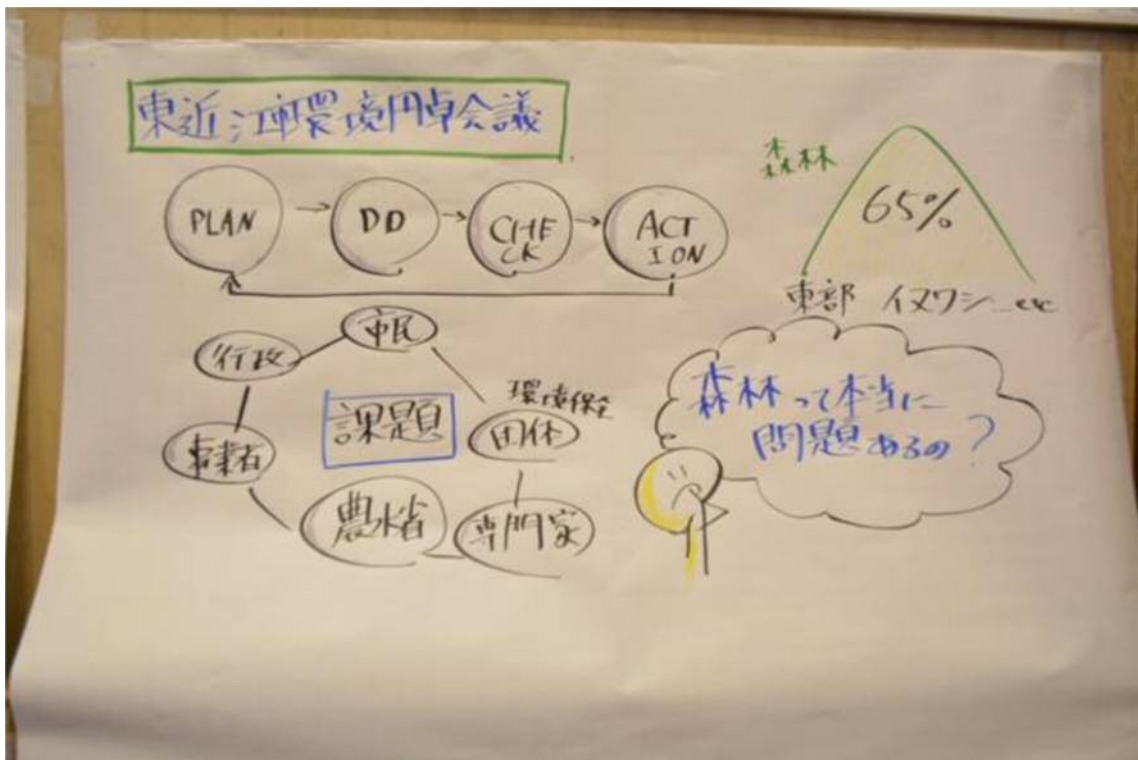 東近江市環境円卓会議
PLAN → DO → CHE
CK → ACT
ION
森林
65%
東部 イヌワシ...etc
市民
行政
課題
環境保全
団体
事業者
農水省
専門家
森林って本当に
問題あるの?